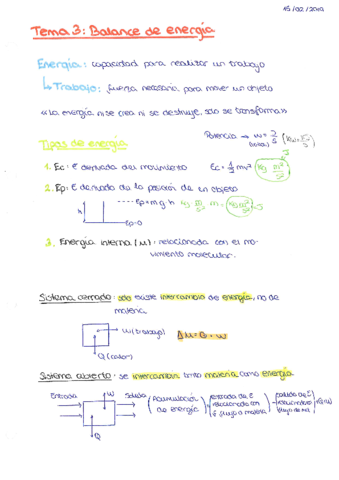 15/02/2019
Tema 3: Balance de energía
Energía: capacidad para realizar un trabajo
↳ Trabajo: fuerza necesaria para mover un objeto
«La energía ni se crea ni se destruye, solo se transforma»
Tipos de energía
Potencia → W = J/s
1. Ec: E derivada del movimiento Ec = 1/2 mv² kg m²/s²
J
2. Ep: E derivada de la posición de un objeto
h
Ep = m g h kg m/s² m = kg m²/s² = J
Ep=0
3. Energía interna (u): relacionada con el mo-
vimiento molecular.
Sistema cerrado: solo existe intercambio de energía, no de
materia.
W (trabajo)
Δu = Q + W
Q (calor)
Sistema abierto: se intercambia tanto materia como energía
Entrada
W
Salida
(Acumulación
de energía)
=
(entrada de E
relacionada con
flujo de materia)
-
(salida de E
relacionada
flujo de mat)
+Q+W
Q